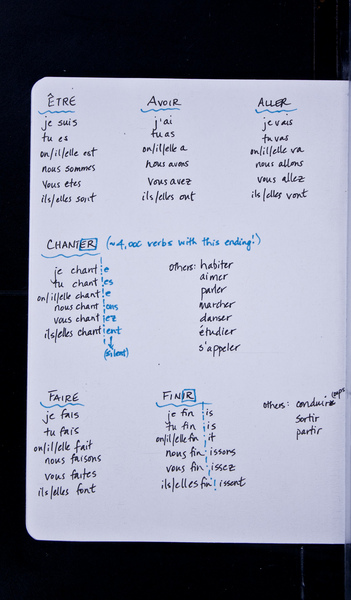 ÊTRE
je suis
tu es
on/il/elle est
nous sommes
vous etes
ils/elles sont
AVOIR
j'ai
tu as
on/il/elle a
nous avons
vous avez
ils/elles ont
ALLER
je vais
tu vas
on/il/elle va
nous allons
vous allez
ils/elles vont
CHANTER (~4,000 verbs with this ending!)
je chant e
tu chant es
on/il/elle chant e
nous chant ons
vous chant ez
ils/elles chant ent
(silent)
others: habiter
aimer
parler
marcher
danser
étudier
s'appeler
FAIRE
je fais
tu fais
on/il/elle fait
nous faisons
vous faites
ils/elles font
FINIR
je fin is
tu fin is
on/il/elle fin it
nous fin issons
vous fin issez
ils/elles fin issent
oops
others: conduire
sortir
partir